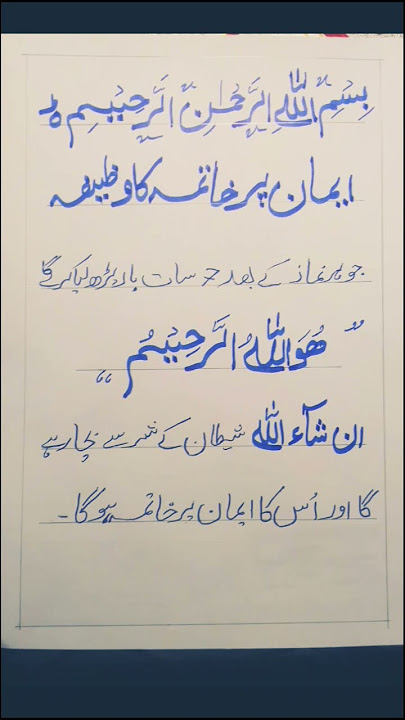 بِسْمِ اللّٰهِ الرَّحْمٰنِ الرَّحِيْمِ ط
ایمان پر خاتمہ کا وظیفہ
جو ہر نماز کے بعد ۷ سات بار پڑھ لیا کرے گا
"هُوَ اللّٰهُ الرَّحِيْمُ"
ان شآء اللّٰه شیطان کے شر سے بچا رہے
گا اور اُس کا ایمان پر خاتمہ ہوگا۔